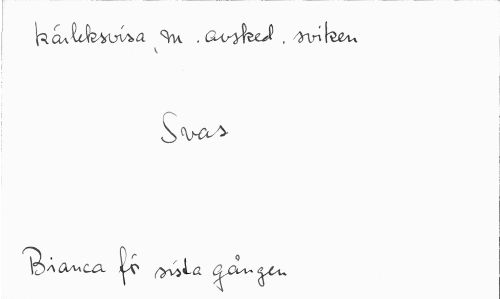 kärleksvisa, m. avsked. sviken
Svas
Bianca för sista gången